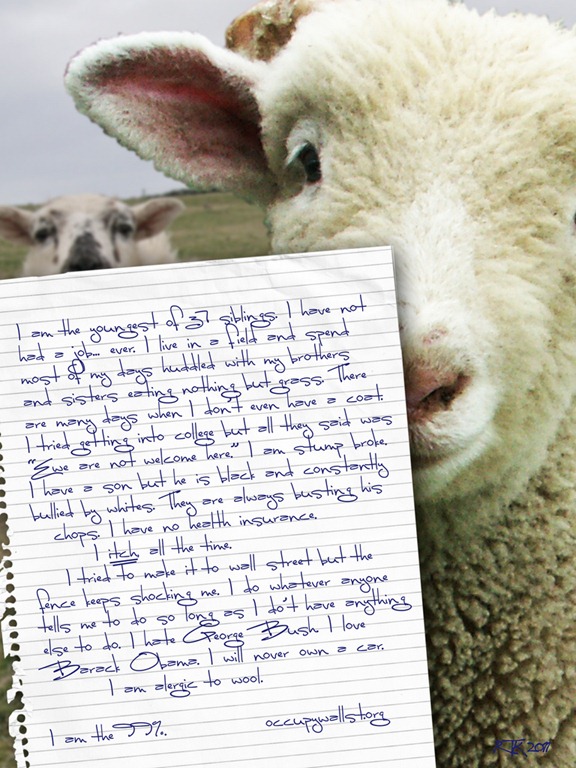 I am the youngest of 37 siblings. I have not
had a job... ever. I live in a field and spend
most of my days huddled with my brothers
and sisters eating nothing but grass. There
are many days when I don't even have a coat.
I tried getting into college but all they said was
"Ewe are not welcome here." I am stump broke.
I have a son but he is black and constantly
bullied by whites. They are always busting his
chops. I have no health insurance.
I itch all the time.
I tried to make it to wall street but the
fence keeps shocking me. I do whatever anyone
tells me to do so long as I do't have anything
else to do. I hate George Bush I love
Barack Obama. I will never own a car.
I am alergic to wool.
I am the 99%. occupywallst.org
RJR 2011